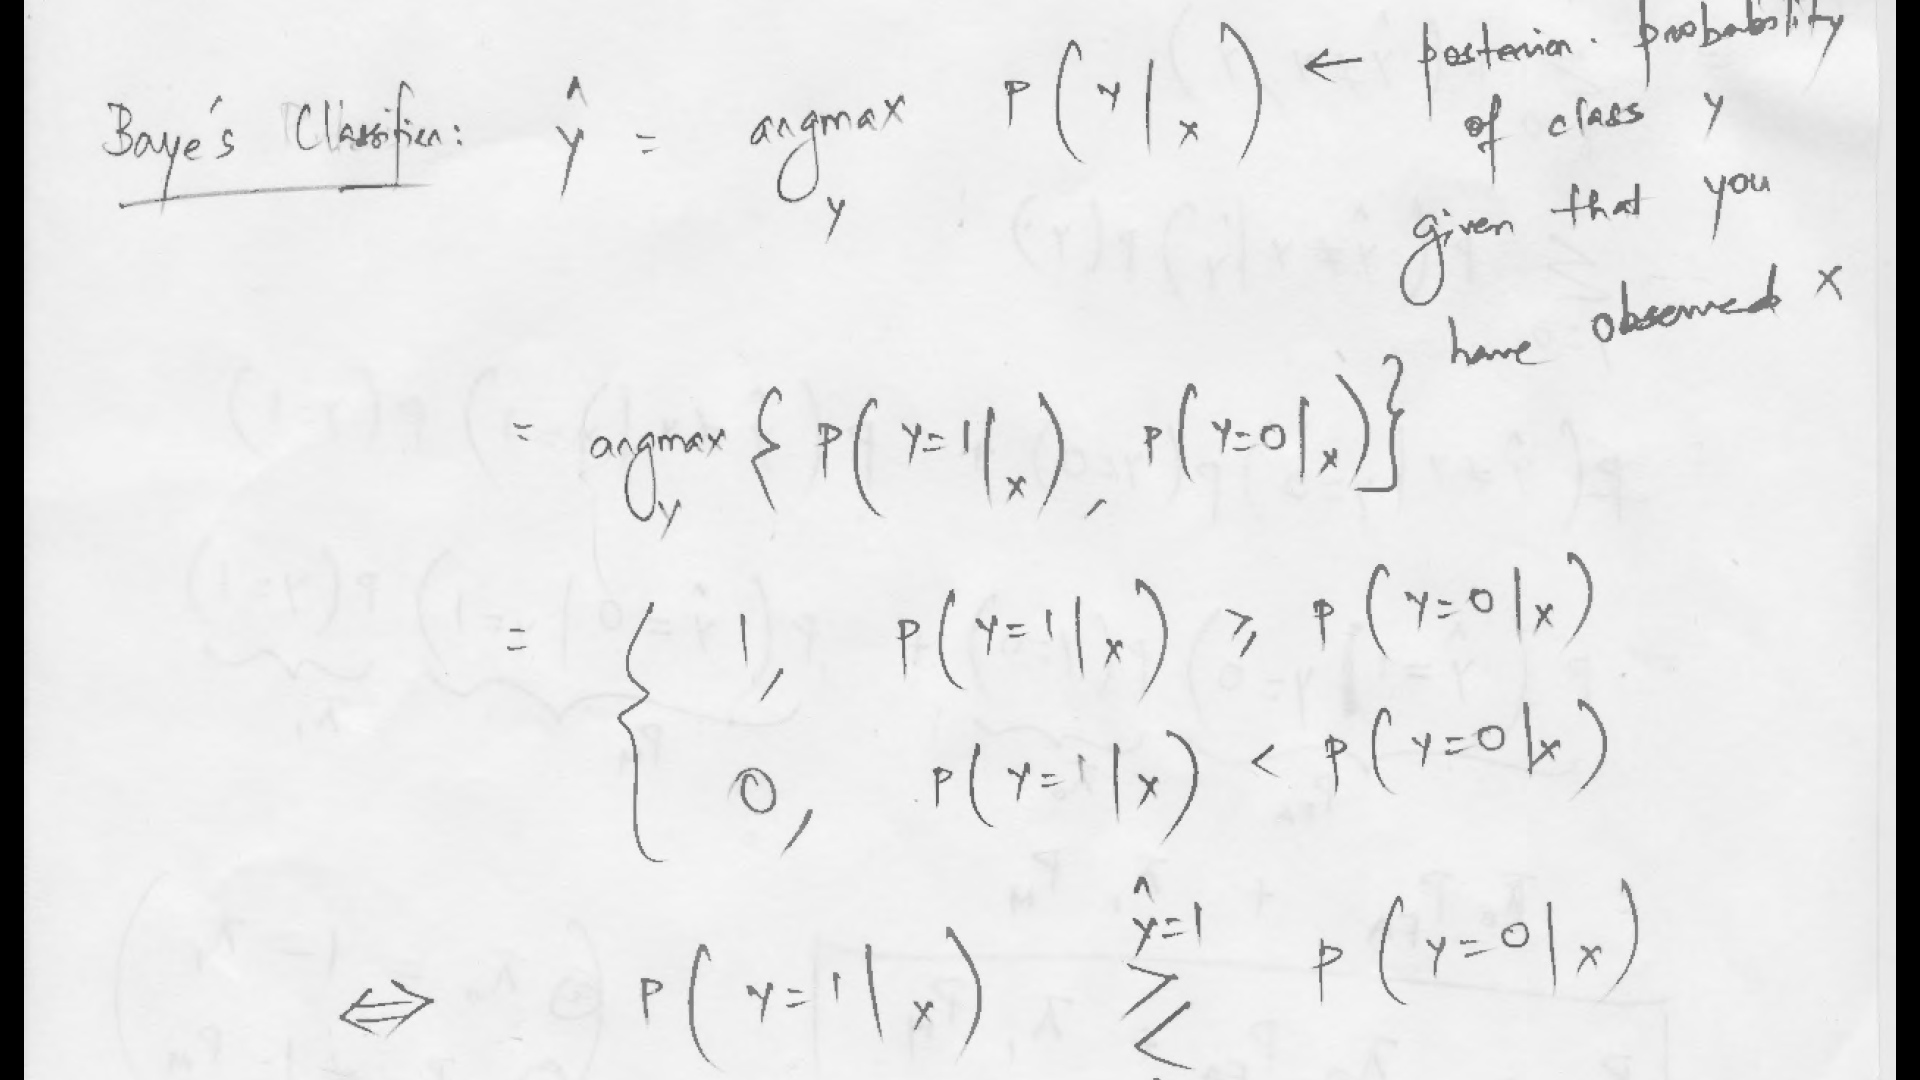 Baye's Classifier: ŷ = argmax_y P(y|x) ← posterior probability
of class y
given that you
have observed x
= argmax_y { P(y=1|x), P(y=0|x) }
= { 1, P(y=1|x) ⩾ P(y=0|x)
0, P(y=1|x) < P(y=0|x)
ŷ=1
⇔ P(y=1|x) ≷ P(y=0|x)